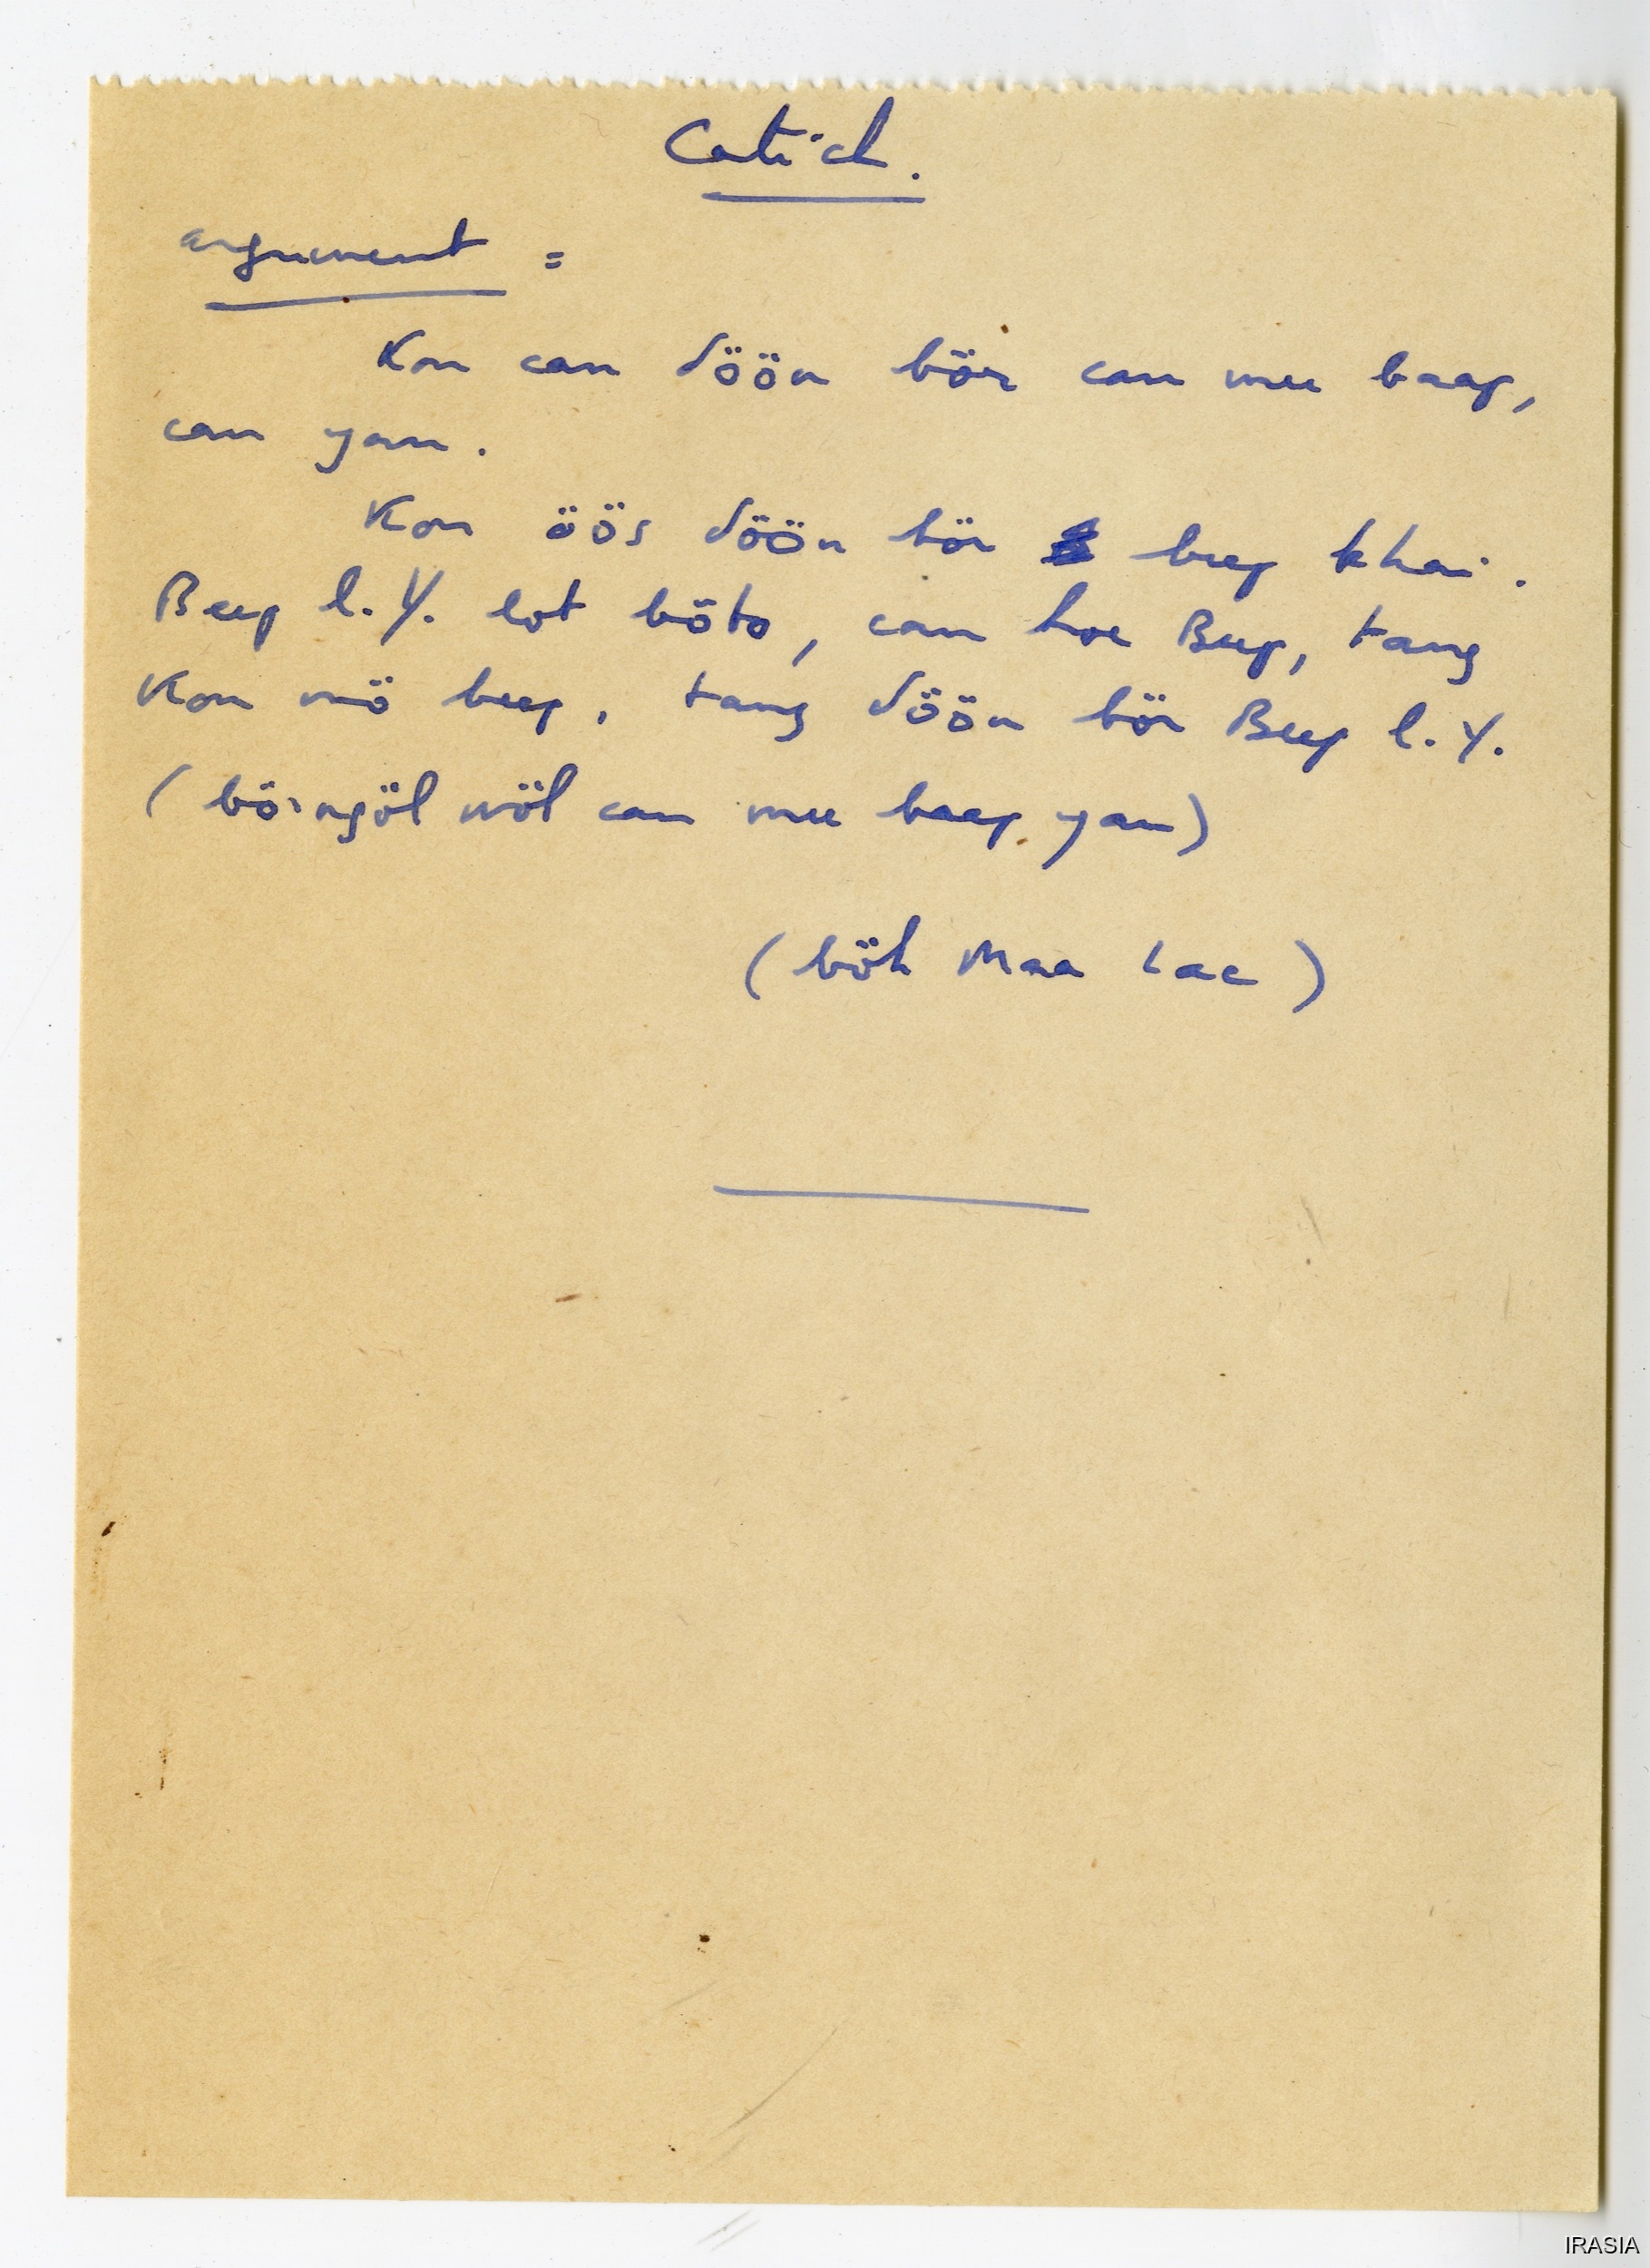 Catéch.
argument =
Kon can döön bör can mee baap,
can yan.
Kon öös döön bör beep khai.
Beep l.Y. lot böto, can hoe Beep, tang
Kon mö beep, tang döön bör Beep l.Y.
(bö ngöl nöl can mee baap yan)
(böh Maa Lac)
IRASIA